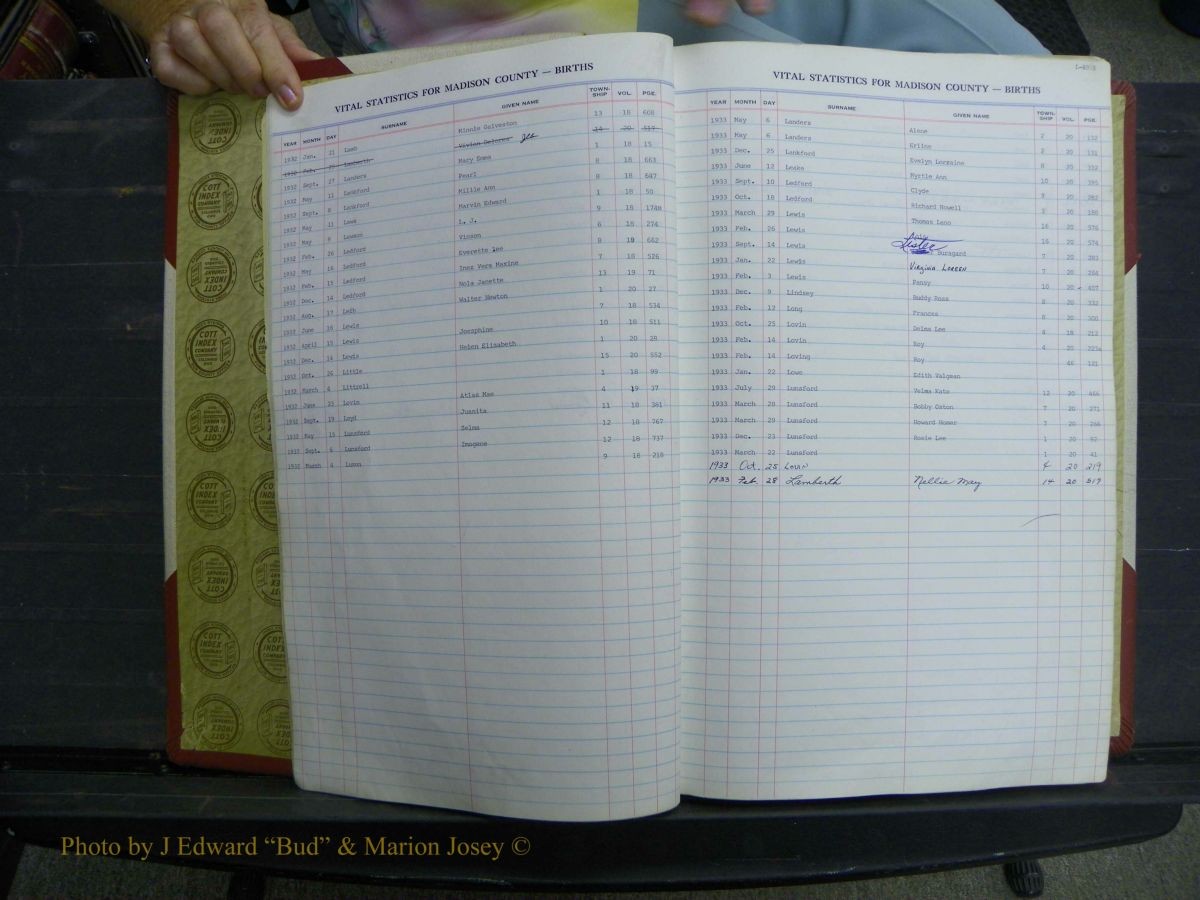 VITAL STATISTICS FOR MADISON COUNTY — BIRTHS
YEAR MONTH DAY SURNAME GIVEN NAME TOWN-SHIP VOL. PGE.
1932 Jan. 21 Lamb Minnie Galveston 13 18 608
1932 Feb. Lamberth Vivian Delores 14 20 517
1932 Sept. 27 Landers Mary Emma 1 18 15
1932 May 11 Lankford Pearl 8 18 663
1932 Sept. 8 Lankford Millie Ann 8 18 647
1932 May 11 Laws Marvin Edward 1 18 50
1932 May 8 Lawson L. J. 9 18
1932 Feb. 26 Ledford Vinson 6 18 274
1932 May 18 Ledford Everette Lee 8 18 662
1932 Feb. 15 Ledford Inez Vera Maxine 7 18 526
1932 Dec. 14 Ledford Nola Janette 13 19 71
1932 Aug. 17 Walter Newton 1 20 27
1932 June 16 Lewis 7 18 534
1932 April 15 Lewis Josephine 10 18 511
1932 Dec. 14 Lewis Helen Elizabeth 1 20 28
1932 Oct. 26 Little 15 20 552
1932 March 4 Littrell 1 18 99
1932 June 23 Atlas Mae 4 19 37
1932 Sept. 19 Loyd Juanita 11 18 361
1932 May 15 Lunsford Zelma 12 18 767
1932 Sept. 6 Lunsford Imogene 12 18 737
1932 March 4 9 18 218
VITAL STATISTICS FOR MADISON COUNTY — BIRTHS
YEAR MONTH DAY SURNAME GIVEN NAME TOWN-SHIP VOL. PGE.
1933 May 6 Landers Alene 2 20 132
1933 May 6 Landers 2 20 131
1933 Dec. 25 Lankford Evelyn Lorraine 8 20 332
1933 June 12 Leake Myrtle Ann 10 20 395
1933 Sept. 10 Ledford Clyde 20 282
1933 Oct. 18 Ledford Richard Howell 20 186
1933 March 29 Lewis Thomas Leno 16 20 576
1933 Feb. 26 Lewis 16 20 574
1933 Sept. 14 Lewis Lister Buragard 7 20 283
1933 Jan. 22 Lewis Virginia Loreen 7 20 284
1933 Feb. 3 Lewis Pansy 10 20 407
1933 Dec. 9 Lindsey Buddy Ross 8 20 332
1933 Feb. 12 Long Frances 20 300
1933 Oct. 25 Lovin Delma Lee 4 18 212
1933 Feb. 14 Lovin Roy 4 20
1933 Feb. 14 Loving Roy 46 121
1933 Jan. 22 Lowe Edith Valgman
1933 July 29 Lunsford Velma Kate 12 20 466
1933 March 28 Lunsford Bobby Gaton 7 20 271
1933 March 29 Lunsford Howard Homer 7 20 266
1933 Dec. 23 Lunsford Rosie Lee 1 20 52
1933 March 22 Lunsford 1 20 41
1933 Oct. 25 Lovin 4 20 219
1933 Feb. 28 Lamberth Nellie May 14 20 517
COTT INDEX COMPANY
Photo by J Edward “Bud” & Marion Josey ©